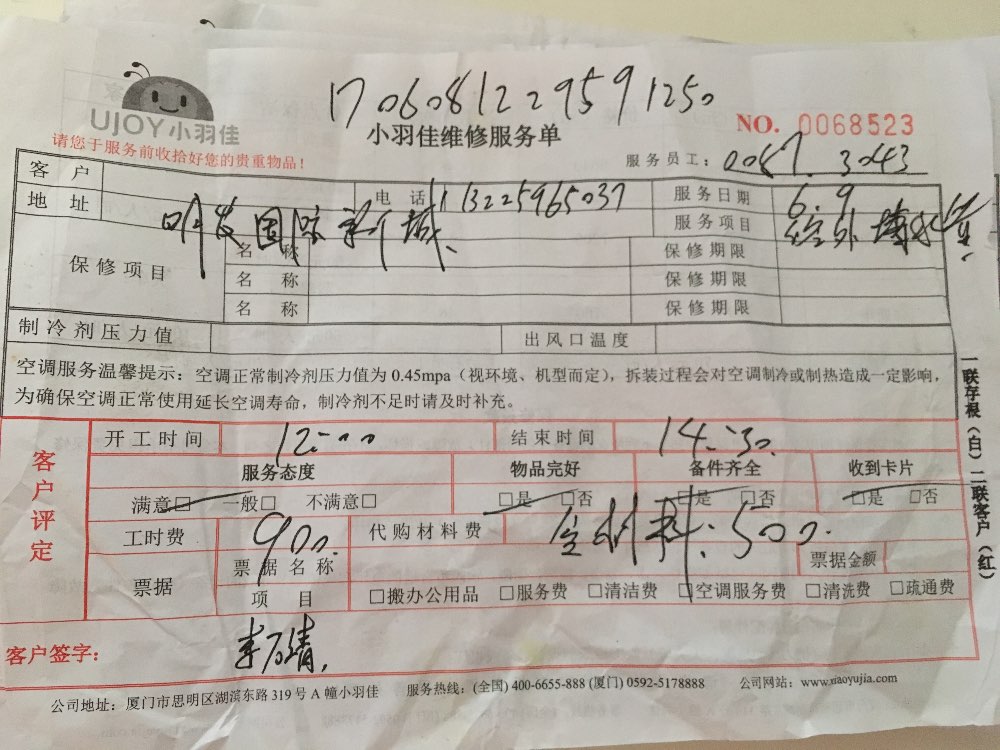 1706081229591250
UJOY小羽佳
小羽佳维修服务单
NO. 0068523
请您于服务前收拾好您的贵重物品！
服务员工：0067. 3043
客 户
地 址 明发国际新城
电 话 13225965037
服务日期 6.9
服务项目
保修项目
名 称 保修期限
名 称 保修期限
名 称 保修期限
制冷剂压力值 出风口温度
空调服务温馨提示：空调正常制冷剂压力值为 0.45mpa（视环境、机型而定），拆装过程会对空调制冷或制热造成一定影响，
为确保空调正常使用延长空调寿命，制冷剂不足时请及时补充。
一联存根（白）二联客户（红）
客户评定
开工时间 12:00 结束时间 14:30
服务态度 物品完好 备件齐全 收到卡片
满意□ 一般□ 不满意□ □是 □否 □是 □否 □是 □否
工时费 900. 代购材料费 含材料:500.
票据 票据名称 票据金额
项 目 □搬办公用品 □服务费 □清洁费 □空调服务费 □清洗费 □疏通费
客户签字：
公司地址：厦门市思明区湖滨东路 319 号 A 幢小羽佳 服务热线：(全国) 400-6655-888 (厦门) 0592-5178888 公司网站：www.xiaoyujia.com